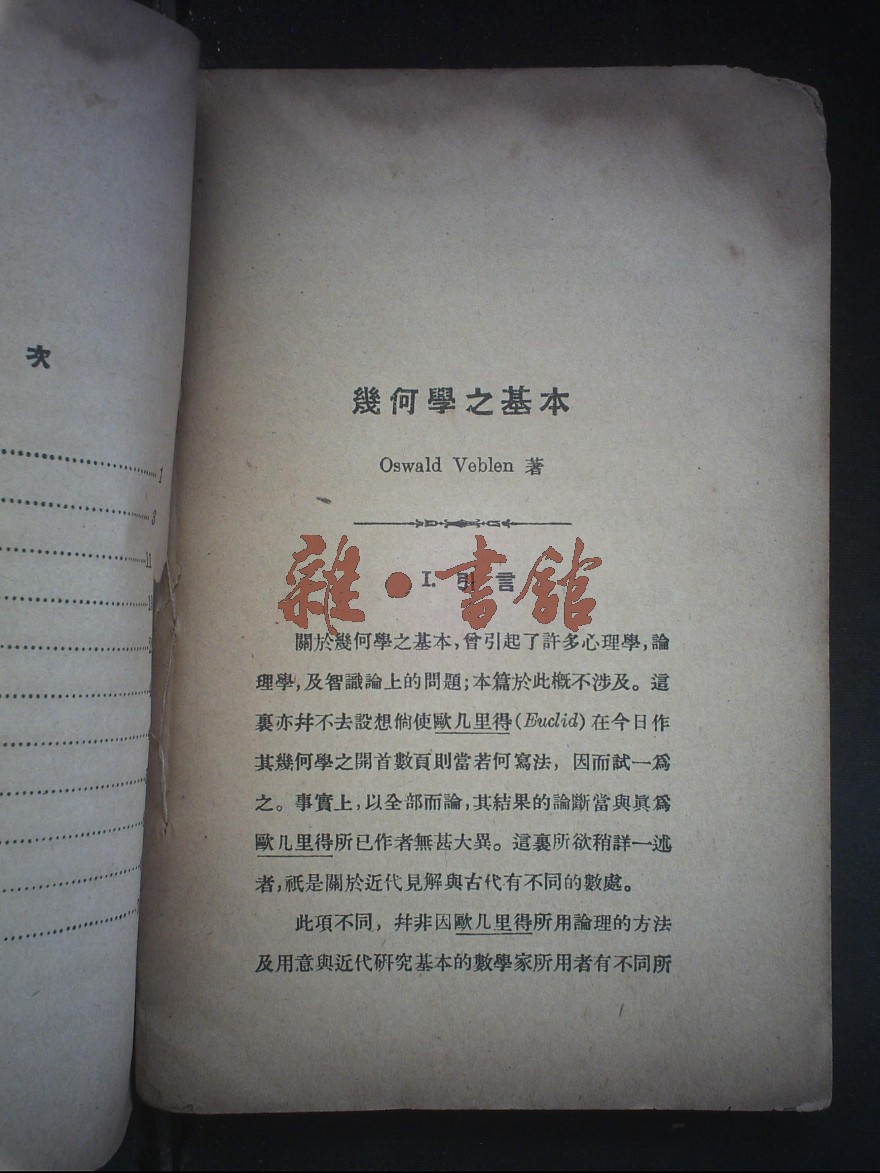 次
1
3
11
幾何學之基本
Oswald Veblen 著
I. 引言
雜·書館
關於幾何學之基本,曾引起了許多心理學,論
理學,及智識論上的問題;本篇於此概不涉及。這
裏亦幷不去設想倘使歐几里得(Euclid)在今日作
其幾何學之開首數頁則當若何寫法,因而試一爲
之。事實上,以全部而論,其結果的論斷當與眞爲
歐几里得所已作者無甚大異。這裏所欲稍詳一述
者,祇是關於近代見解與古代有不同的數處。
此項不同,幷非因歐几里得所用論理的方法
及用意與近代研究基本的數學家所用者有不同所